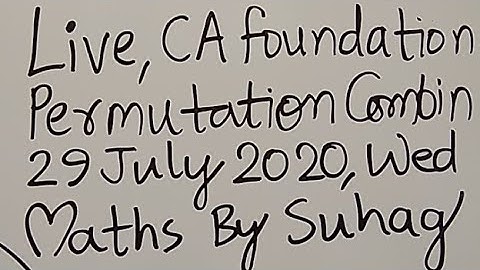 Live, CA foundation
Permutation Combin
29 July 2020, Wed
Maths By Suhag